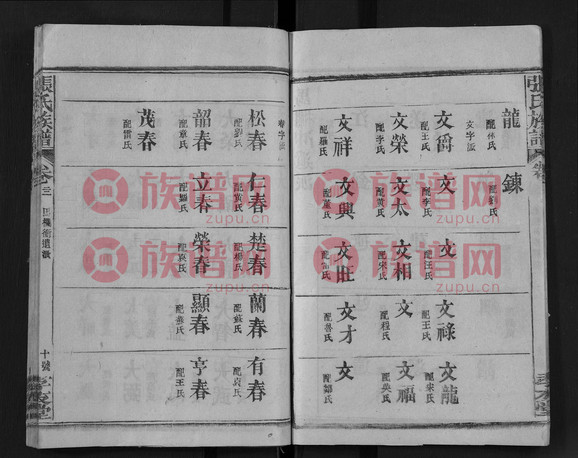 張氏族譜
龍
配林氏
鍊
配劉氏
文字派
文爵
配王氏
文
配李氏
文
配汪氏
文祿
配王氏
文龍
配宋氏
文榮
配李氏
文太
配黃氏
文相
配宋氏
文
配程氏
文福
配吳氏
文祥
配羅氏
文興
配董氏
文旺
配雷氏
文才
配魯氏
文
春字派
松春
配劉氏
仁春
配黃氏
楚春
配楊氏
蘭春
配蘇氏
有春
配袁氏
韶春
配章氏
立春
榮春
配袁氏
顯春
亨春
配王氏
茂春
配雷氏
張氏族譜
卷三
十號
孝友堂
族谱网
zupu.cn